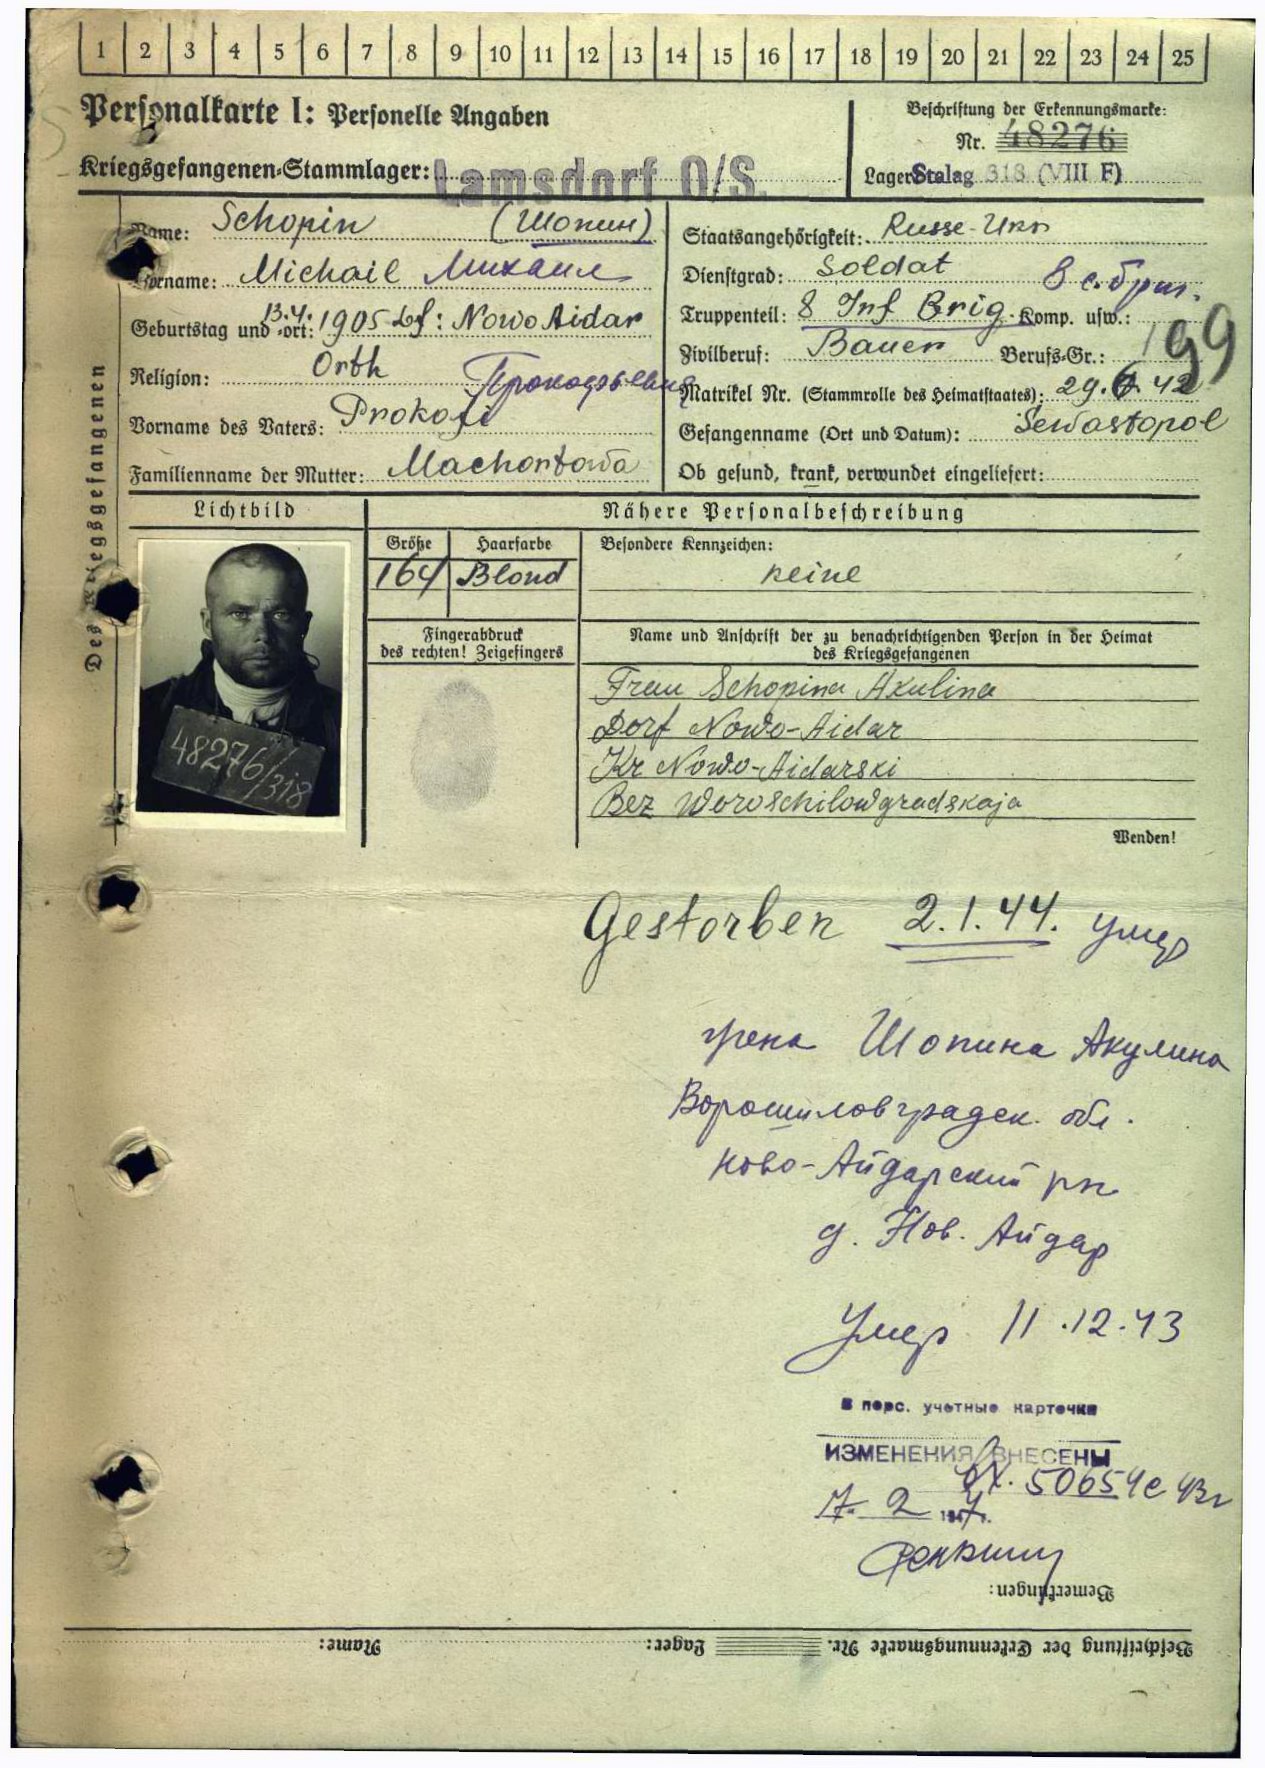 1 2 3 4 5 6 7 8 9 10 11 12 13 14 15 16 17 18 19 20 21 22 23 24 25
Personalkarte I: Personelle Angaben
Beschriftung der Erkennungsmarke:
Nr. 48276
Kriegsgefangenen-Stammlager: Lamsdorf O/S.
Lager: Stalag 318 (VIII F)
Des Kriegsgefangenen
Name: Schopin (Шопин)
Vorname: Michail Михаил
Geburtstag und -ort: 13.4. 1905 Df: Nowo Aidar
Religion: Orth
Прокофьевич
Vorname des Vaters: Prokofi
Familienname der Mutter: Machortowa
Staatsangehörigkeit: Russe-Ukr
Dienstgrad: Soldat 8 с.бриг.
Truppenteil: 8 Inf Brig. Komp. usw.:
Zivilberuf: Bauer Berufs-Gr.: 199
Matrikel Nr. (Stammrolle des Heimatstaates): 29.6.42
Gefangenname (Ort und Datum): Sewastopol
Ob gesund, krank, verwundet eingeliefert:
Lichtbild
Nähere Personalbeschreibung
Größe Haarfarbe Besondere Kennzeichen:
164 Blond keine
Fingerabdruck
des rechten! Zeigefingers
Name und Anschrift der zu benachrichtigenden Person in der Heimat
des Kriegsgefangenen
Frau Schopina Akulina
Dorf Nowo-Aidar
Kr Nowo-Aidarski
Bez Woroschilowgradskaja
48276/318
Wenden!
Gestorben 2.1.44. умер
жена Шопина Акулина
Ворошиловградск. обл.
Ново-Айдарский рн
д. Нов. Айдар
Умер 11.12.43
В перс. учетные карточки
ИЗМЕНЕНИЯ ВНЕСЕНЫ
вх. 50654с 43г
17. 2 1947 г.
Bemerkungen:
Beschriftung der Erkennungsmarke Nr. Lager: Name: